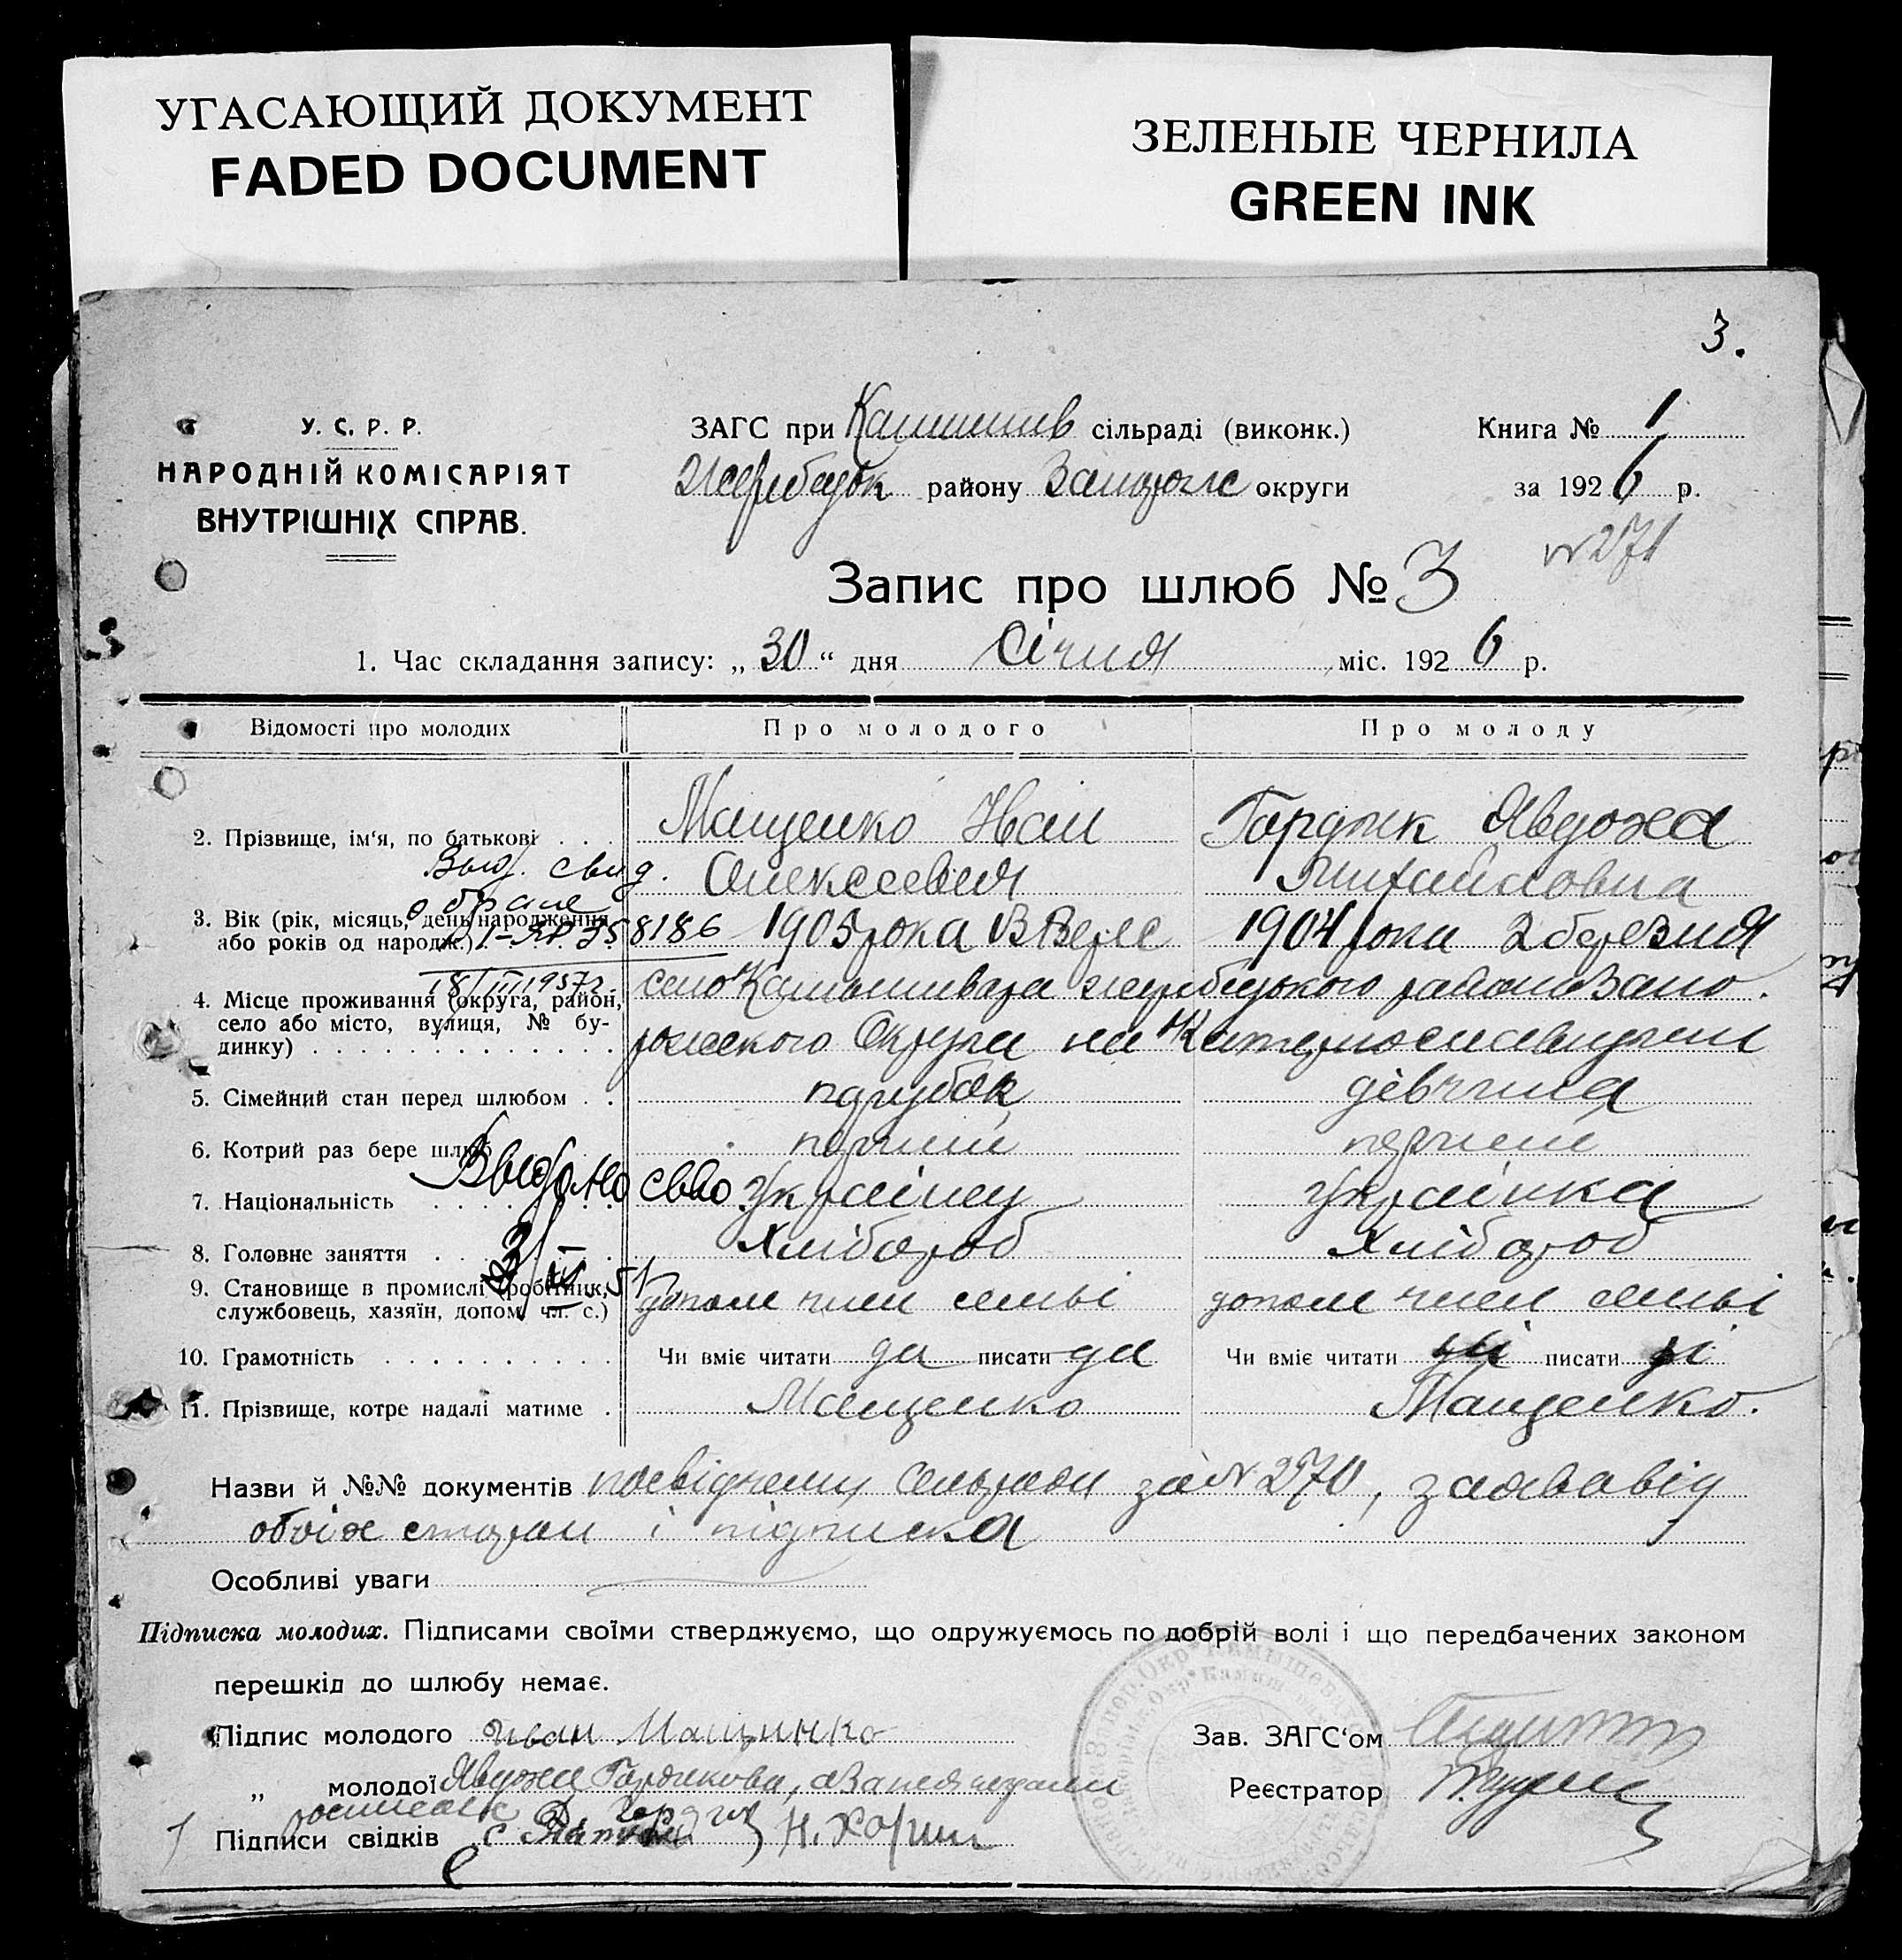 УГАСАЮЩИЙ ДОКУМЕНТ
FADED DOCUMENT
ЗЕЛЕНЫЕ ЧЕРНИЛА
GREEN INK
3.
У. С. Р. Р.
НАРОДНІЙ КОМІСАРІЯТ
ВНУТРІШНІХ СПРАВ.
ЗАГС при Камишев сільраді (виконк.)
Жеребецьк району Запорож округи
Книга № 1
за 1926 р.
№271
Запис про шлюб № 3
1. Час складання запису: „30“ дня Січня міс. 1926 р.
Відомості про молодих Про молодого Про молоду
2. Прізвище, ім‘я, по батькові . . . Мащенко Иван Гордик Явдоха
Выд. свид. Олексеевич Михайловна
о браке
3. Вік (рік, місяць, день народження або років од народж.) 1905 рока Верес 1904 рока 2 березня
I-ЯР 358186
18/III 1957г.
4. Місце проживання (округа, район, село або місто, вулиця, № будинку) село Камышеваха жеребецького района Запорожского Округи на Катеринославщині
5. Сімейний стан перед шлюбом . . парубок дівчина
6. Котрий раз бере шлюб перший перший
Выдано св-во
7. Національність українец українка
8. Головне заняття Хлібороб Хлібороб
9. Становище в промислі (робітник, службовець, хазяїн, допом. чл. с.) допом член семьі допом член семьі
10. Грамотність Чи вміє читати да писати да Чи вміє читати ні писати ні
11. Прізвище, котре надалі матиме . Мащенко Мащенко.
Назви й №№ документів посвідчення Сельради за №270, заява від
обоіх сторон і підписка
Особливі уваги
Підписка молодих. Підписами своїми стверджуємо, що одружуємось по добрій волі і що передбачених законом
перешкід до шлюбу немає.
Підпис молодого Иван Мащинко
Зав. ЗАГС‘ом
„ молодої Явдоха Гордикова, а за нея
Реєстратор
Підписи свідків